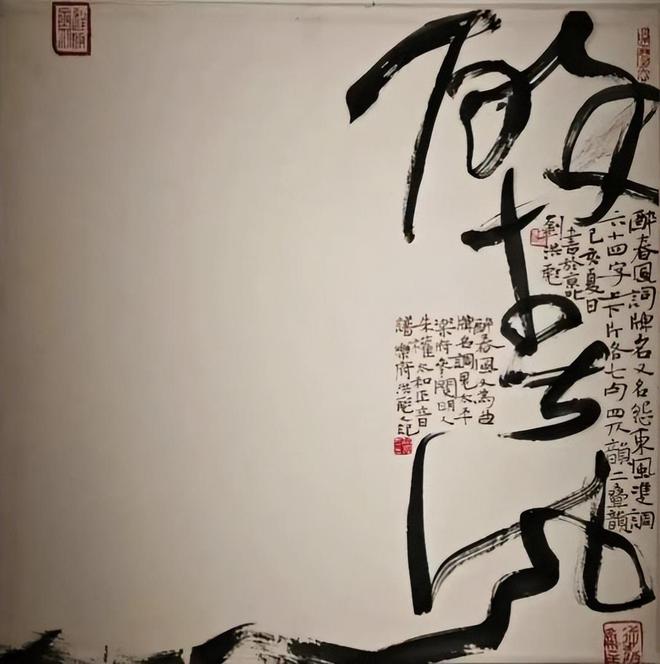 醉春風
醉春風詞牌名又名怨東風雙調
六十四字上下片各七句四仄韻二疊韻
己亥夏日
書於京北
劉洪彪
醉春風又為曲
牌名調見太平
樂府明人
朱權太和正音
譜樂府洪彪又記